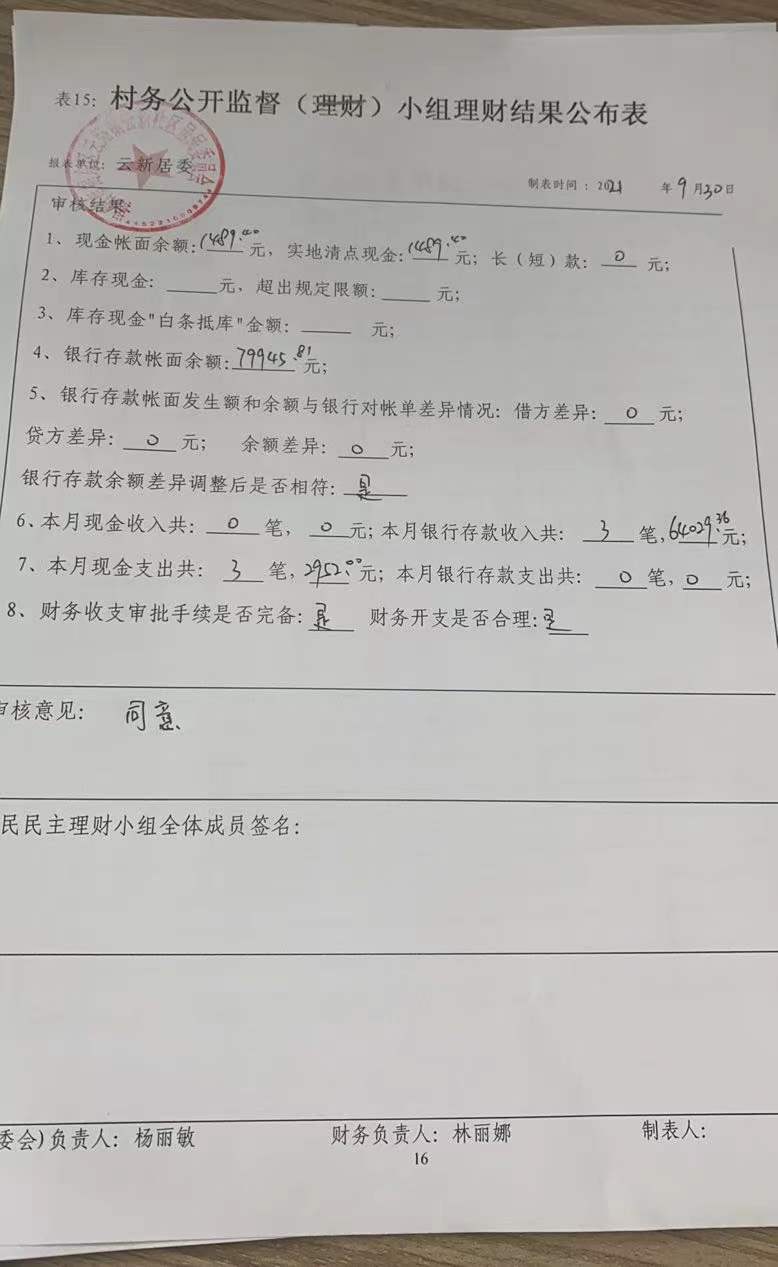 表15：村务公开监督（理财）小组理财结果公布表
报表单位：云新居委
制表时间：2021 年9月30日
审核结果：
1、现金帐面余额：1489.40元，实地清点现金：1489.40元；长（短）款：0元；
2、库存现金：____元，超出规定限额：____元；
3、库存现金"白条抵库"金额：____元；
4、银行存款帐面余额：79945.81元；
5、银行存款帐面发生额和余额与银行对帐单差异情况：借方差异：0元；
贷方差异：0元； 余额差异：0元；
银行存款余额差异调整后是否相符：是
6、本月现金收入共：0笔，0元；本月银行存款收入共：3笔，64029.36元；
7、本月现金支出共：3笔，2952.00元；本月银行存款支出共：0笔，0元；
8、财务收支审批手续是否完备：是 财务开支是否合理：是
审核意见： 同意
民民主理财小组全体成员签名：
委会)负责人：杨丽敏 财务负责人：林丽娜 制表人：
16